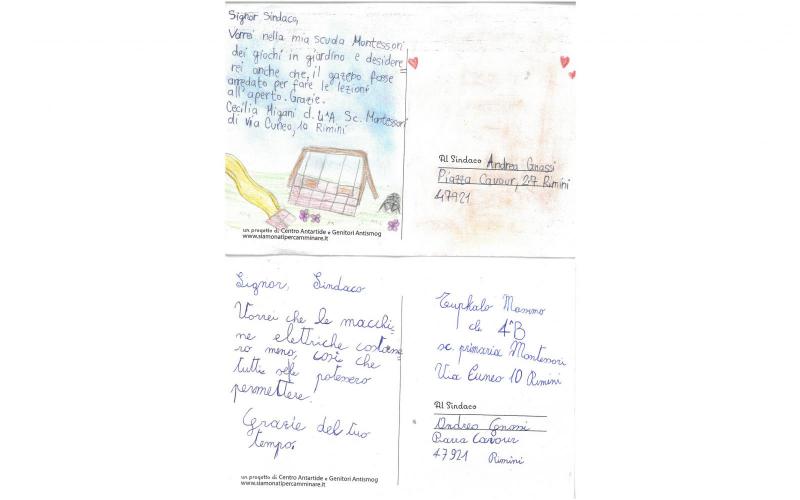 Signor Sindaco,
Vorrei nella mia scuola Montessori
dei giochi in giardino e desidere
rei anche che, il gazebo fosse
arredato per fare le lezioni
all'aperto. Grazie.
Cecilia Migani cl. 4ªA Sc. Montessori
di via Cuneo, 10 Rimini
Al Sindaco Andrea Gnassi
Piazza Cavour, 27 Rimini
47921
un progetto di Centro Antartide e Genitori Antismog
www.siamonatipercamminare.it
Signor, Sindaco
Vorrei che le macchi
ne elettriche costasse
ro meno, così che
tutti se potessero
permettere.
Grazie del tuo
tempo.
cls 4ªB
sc. primaria Montessori
Via Cuneo 10 Rimini
Al Sindaco
Andrea Gnassi
Piazza Cavour
47921 Rimini
un progetto di Centro Antartide e Genitori Antismog
www.siamonatipercamminare.it